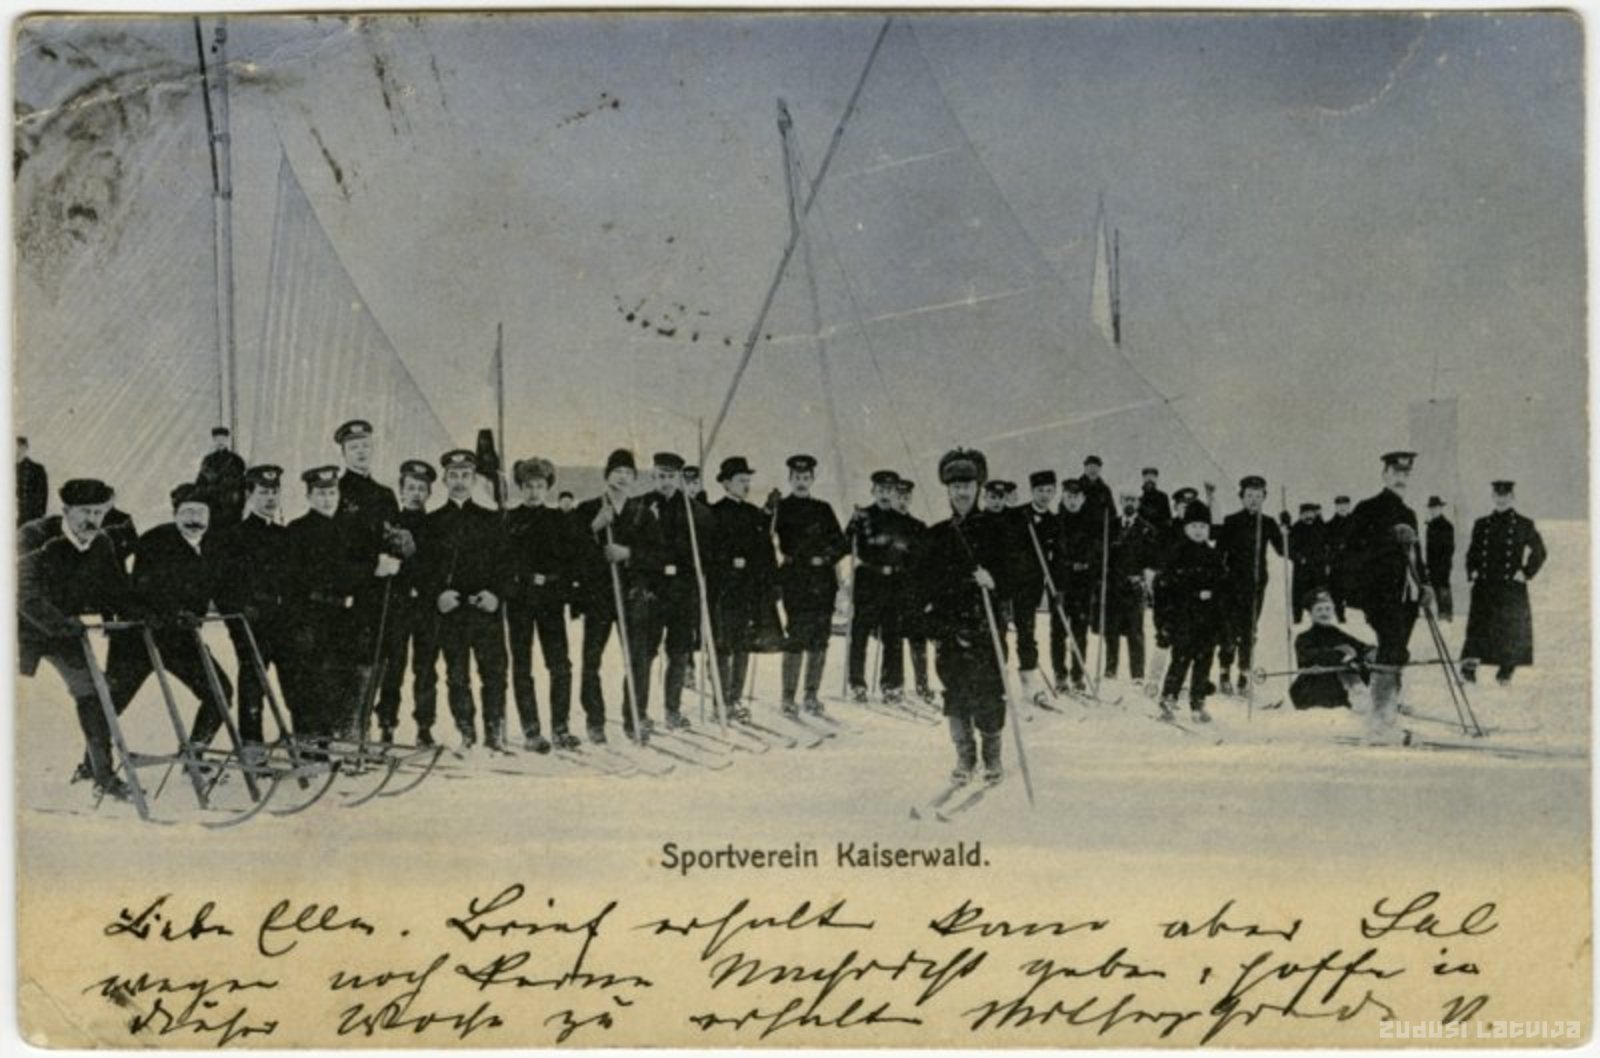 Sportverein Kaiserwald.
Liebe Ella. Brief erhalte kann aber Sal
wegen noch keine Nachricht geben, hoffe in
dieser Woche zu erhalte
ZUDUSI LATVIJA